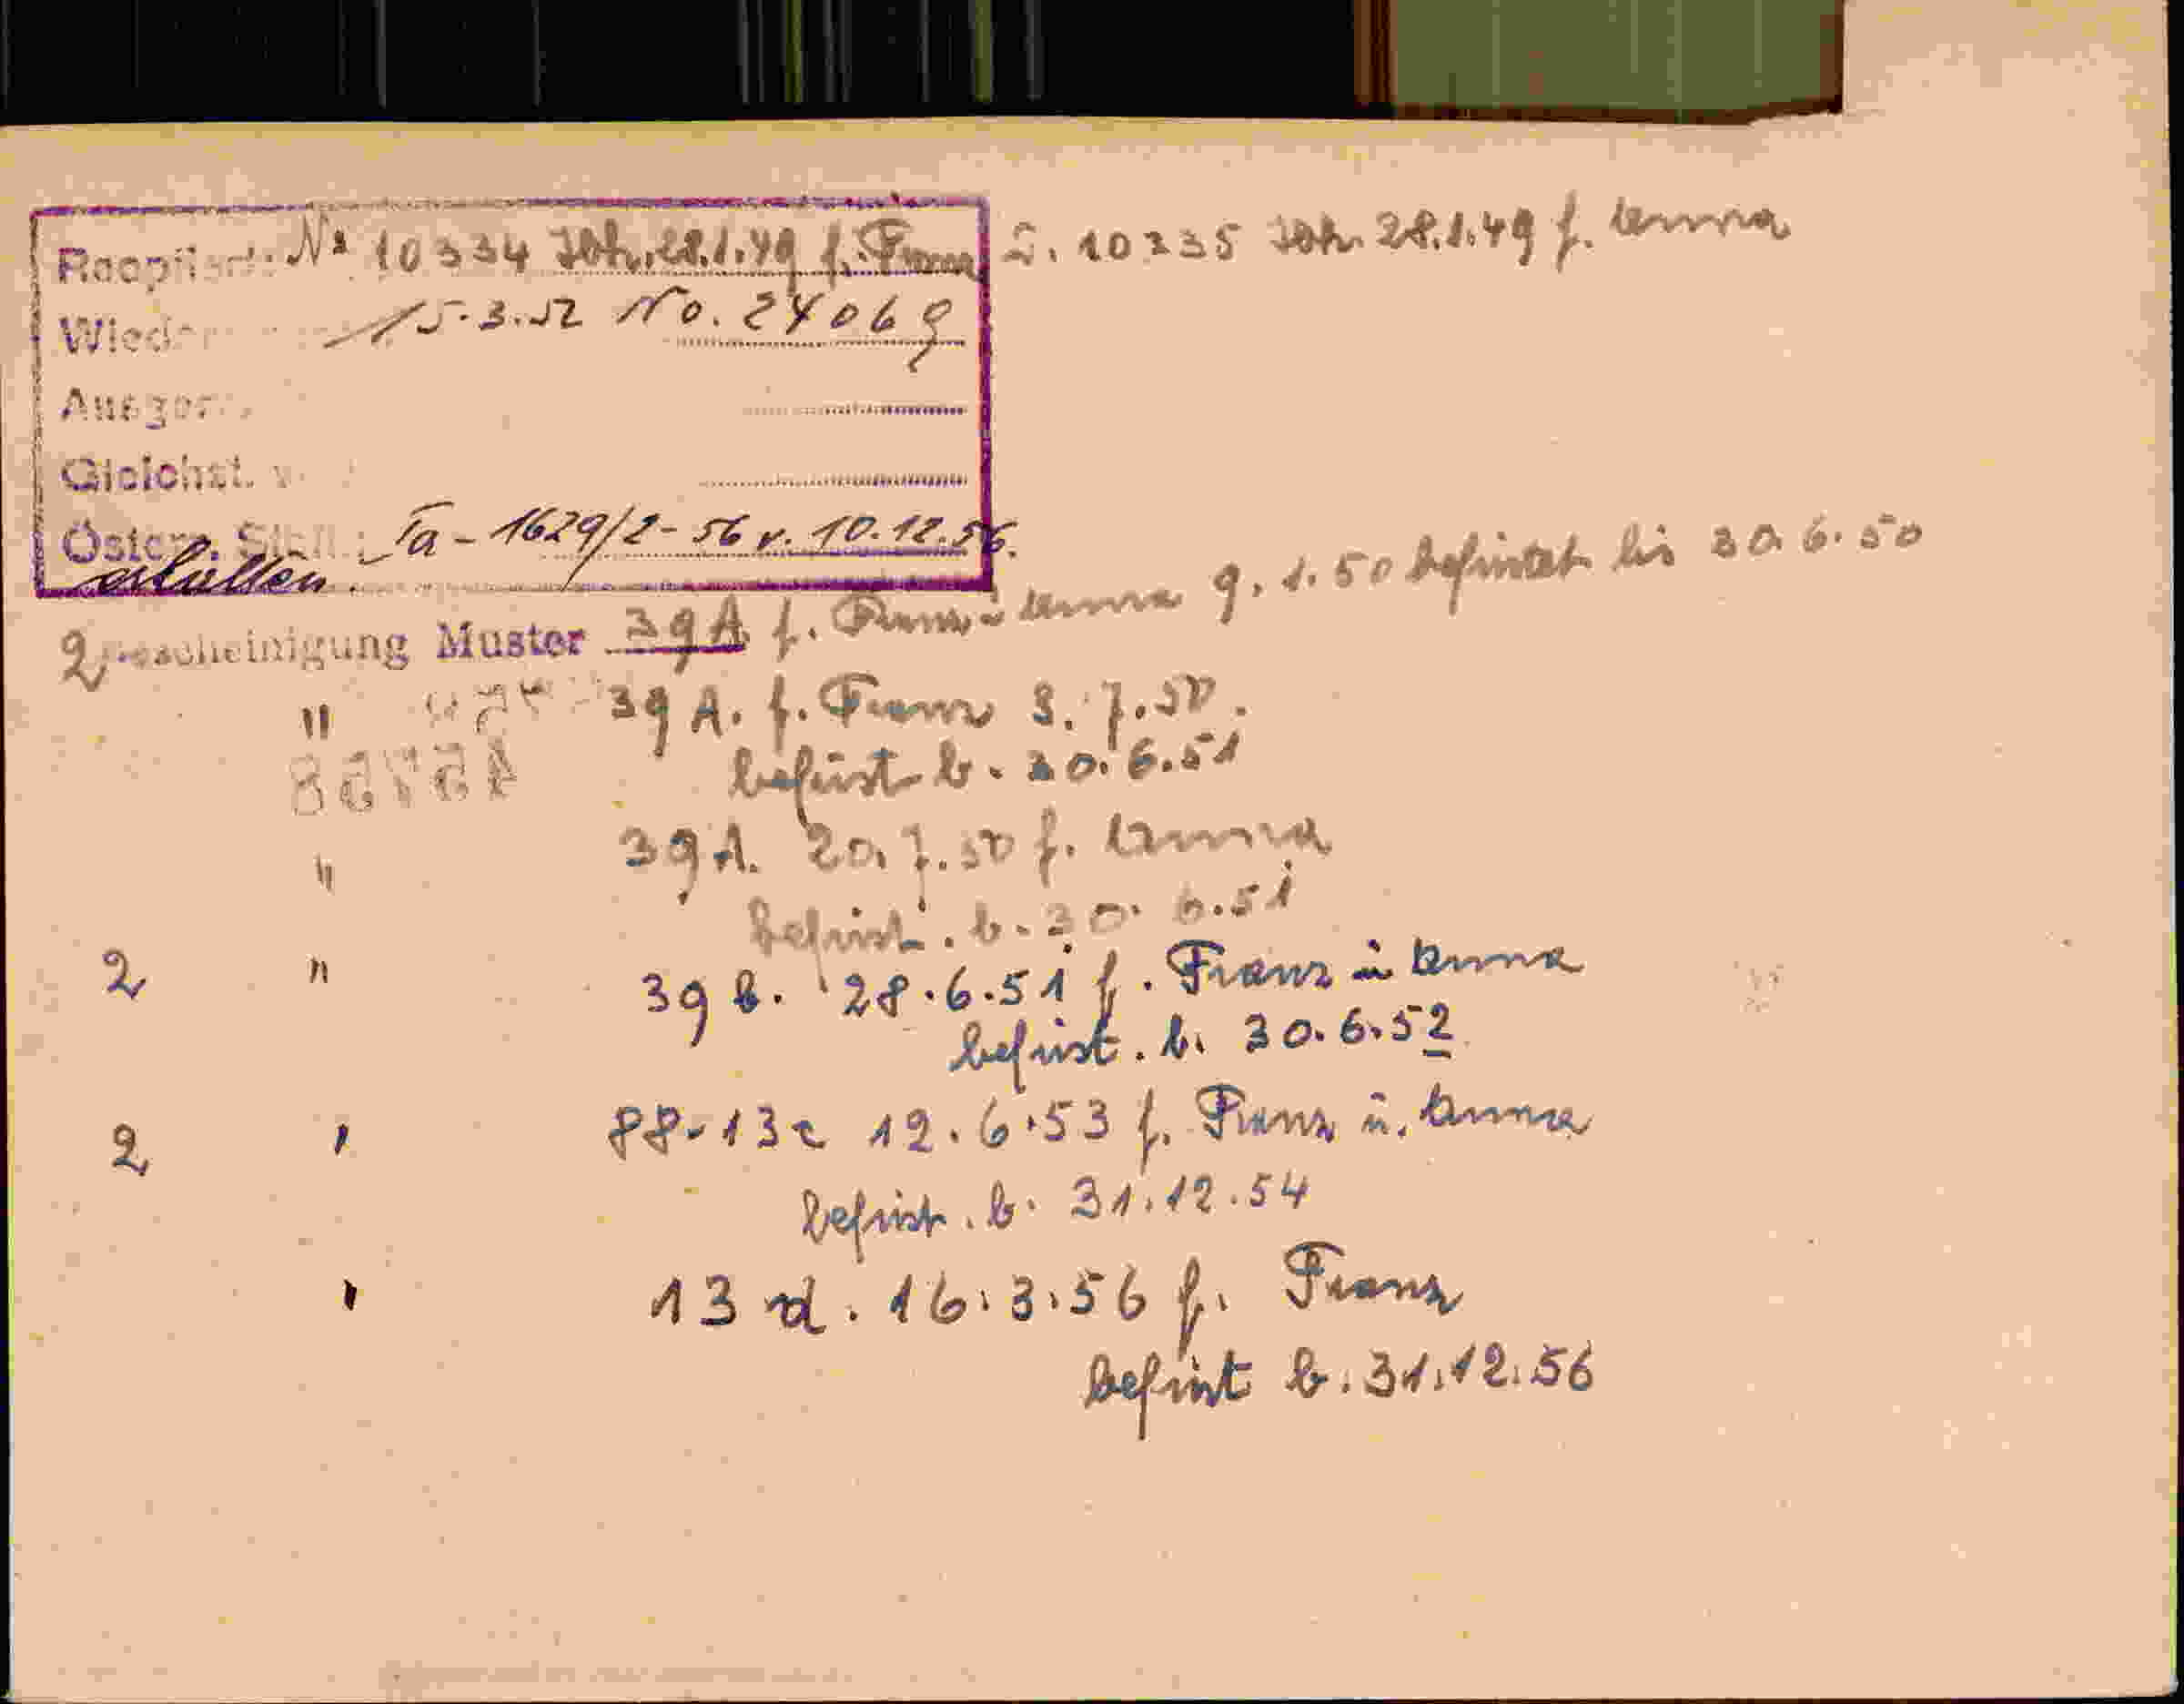 Nº 10334 Ibk. 28.1.49 f. Franz u. 10335 Ibk. 28.1.49 f. Anna
15.3.52 No. 24069
Gleichst.
Österr. Ia-1629/2-56 v. 10.12.56.
erhalten.
2 Bescheinigung Muster 39A f. Franz u Anna 9.1.50 befristet bis 30.6.50
" 39 A. f. Franz 8.7.50.
befrist b. 30.6.51
" 39 A. 20.7.50 f. Anna
befrist. b. 30.6.51
2 " 39 b. 28.6.51 f. Franz u Anna
befrist. b. 30.6.52
2 " 88-13c 12.6.53 f. Franz u. Anna
befrist. b. 31.12.54
" 13 d. 16.3.56 f. Franz
befrist b. 31.12.56